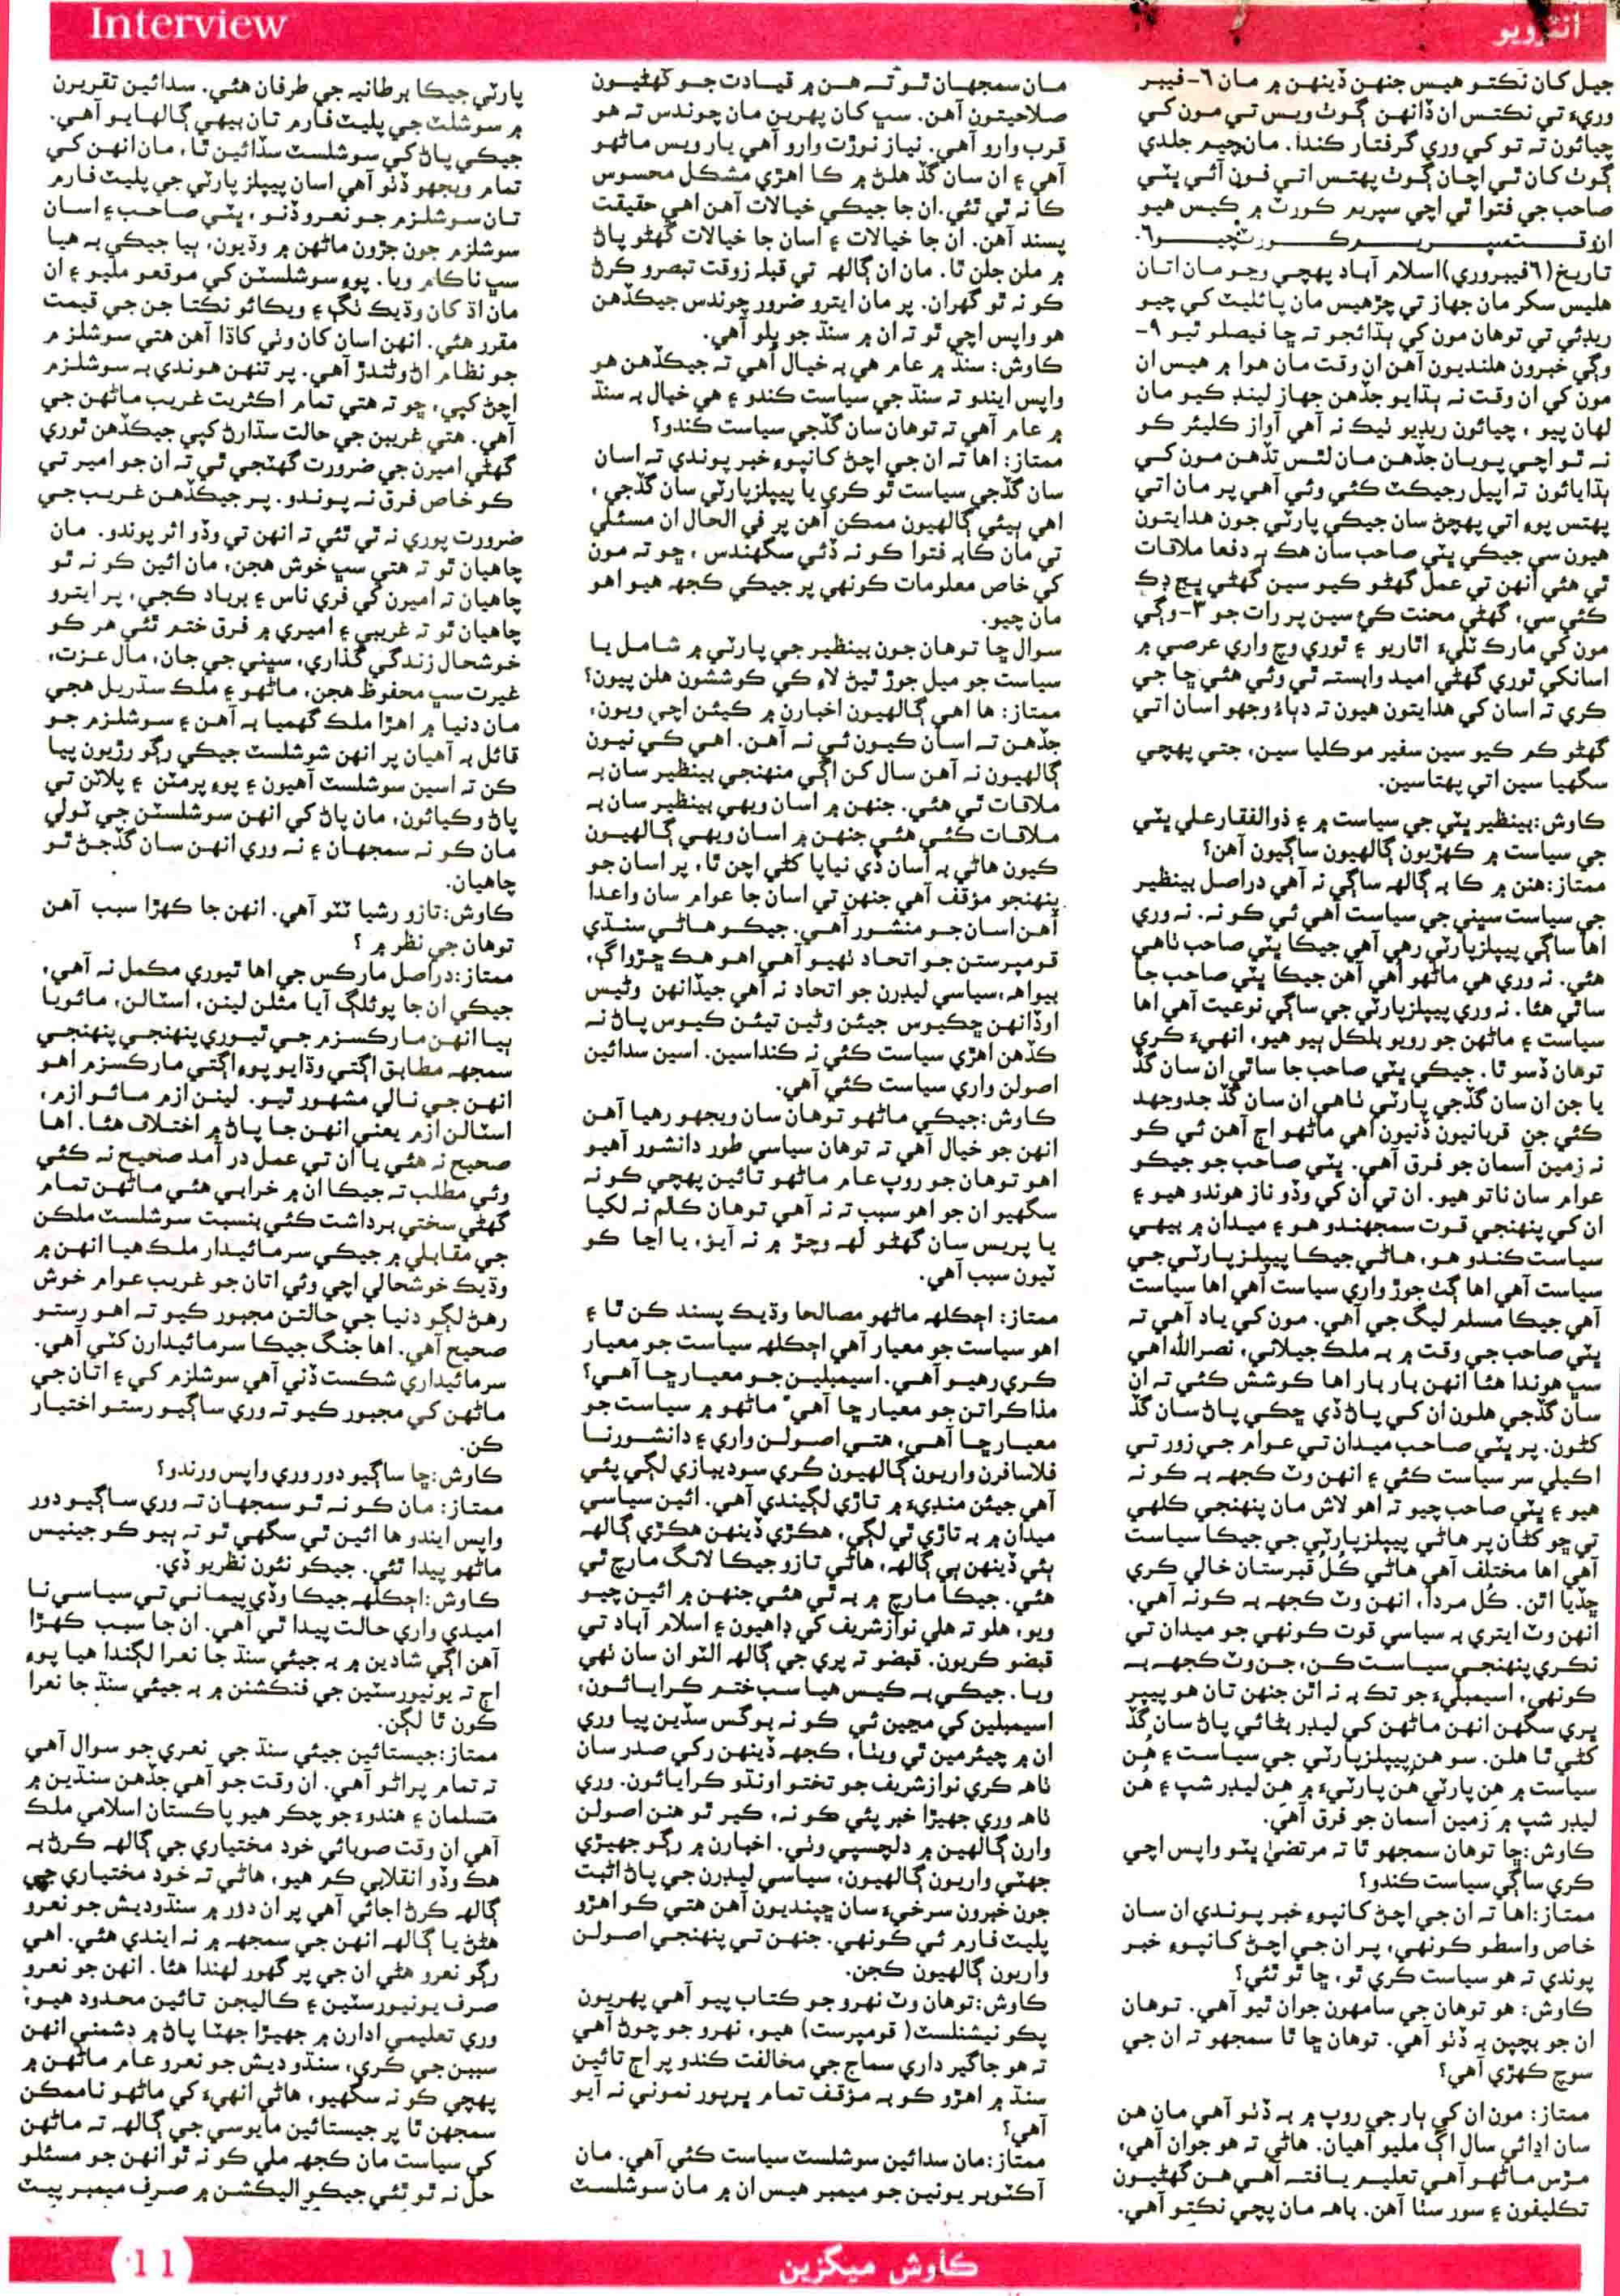 Interview
انٽرويو
جيل کان نڪتو هيس جنهن ڏينهن ۾ مان ٦-فيبر
وريءَ تي نڪتس ان ڏانهن ڳوٺ ويس تي مون کي
چيائون ته تو کي وري گرفتار ڪندا. مان چيم جلدي
ڳوٺ کان ٿي اچان ڳوٺ پهتس اتي فون آئي ڀٽي
صاحب جي فتوا ٿي اچي سپريم ڪورٽ ۾ ڪيس هيو
تاريخ (٦فيبروري) اسلام آباد پهچي وڃو مان اتان
هليس سکر مان جهاز تي چڙهيس مان پائليٽ کي چيو
ريڊئي تي توهان مون کي ٻڌائجو ته ڇا فيصلو ٿيو ٩-
وڳي خبرون هلنديون آهن ان وقت مان هوا ۾ هيس ان
مون کي ان وقت نه ٻڌايو جڏهن جهاز لينڊ ڪيو مان
لهان پيو ، چيائون ريڊيو ٺيڪ نه آهي آواز ڪليئر ڪو
نه ٿو اچي پويان جڏهن مان لٿس تڏهن مون کي
ٻڌايائون ته اپيل رجيڪٽ ڪئي وئي آهي پر مان اتي
پهتس پوءِ اتي پهچڻ سان جيڪي پارٽي جون هدايتون
هيون سي جيڪي ڀٽي صاحب سان هڪ ٻه دفعا ملاقات
ٿي هئي انهن تي عمل گهڻو ڪيو سين گهڻي ڀڄ ڊڪ
ڪئي سي، گهڻي محنت ڪئ سين پر رات جو ٣-وڳي
مون کي مارڪ ٽلي اٿاريو ۽ ٿوري وچ واري عرصي ۾
اسانکي ٿوري گهڻي اميد وابسته ٿي وئي هئي ڇا جي
ڪري ته اسان کي هدايتون هيون ته دٻاءُ وجهو اسان اتي
گهڻو ڪم ڪيو سين سفير موڪليا سين، جتي پهچي
سگهيا سين اتي پهتاسين.
ڪاوش:بينظير ڀٽي جي سياست ۾ ۽ ذوالفقار علي ڀٽي
جي سياست ۾ ڪهڙيون ڳالهيون ساڳيون آهن؟
ممتاز:هنن ۾ ڪا به ڳالهه ساڳي نه آهي دراصل بينظير
جي سياست سڀني جي سياست آهي ئي ڪو نه. نه وري
اها ساڳي پيپلزپارٽي رهي آهي جيڪا ڀٽي صاحب ٺاهي
هئي. نه وري هي ماڻهو اُهي آهن جيڪا ڀٽي صاحب جا
ساٿي هئا. نه وري پيپلزپارٽي جي ساڳي نوعيت آهي اها
سياست ۽ ماڻهن جو رويو بلڪل ٻيو هيو، انهيءَ ڪري
توهان ڏسو ٿا. جيڪي ڀٽي صاحب جا ساٿي ان سان گڏ
يا جن ان سان گڏجي پارٽي ٺاهي ان سان گڏ جدوجهد
ڪئي جن قربانيون ڏنيون اُهي ماڻهو اڄ آهن ئي ڪو
نه زمين آسمان جو فرق آهي. ڀٽي صاحب جو جيڪو
عوام سان ناتو هيو. ان تي ان کي وڏو ناز هوندو هيو ۽
ان کي پنهنجي قوت سمجهندو هو ۽ ميدان ۾ بيهي
سياست ڪندو هو، هاڻي جيڪا پيپلزپارٽي جي
سياست آهي اها ڳٺ جوڙ واري سياست آهي اها سياست
آهي جيڪا مسلم ليگ جي آهي. مون کي ياد آهي ته
ڀٽي صاحب جي وقت ۾ به ملڪ جيلاني، نصرالله اهي
سڀ هوندا هئا انهن بار بار اها ڪوشش ڪئي ته ان
سان گڏجي هلون ان کي پاڻ ڏي ڇڪي پاڻ سان گڏ
کڻون. پر ڀٽي صاحب ميدان تي عوام جي زور تي
اڪيلي سر سياست ڪئي ۽ انهن وٽ ڪجهه به ڪو نه
هيو ۽ ڀٽي صاحب چيو ته اهو لاش مان پنهنجي ڪلهي
تي ڇو کڻان پر هاڻي پيپلزپارٽي جي جيڪا سياست
آهي اها مختلف آهي هاڻي ڪُل قبرستان خالي ڪري
ڇڏيا اٿن. ڪُل مردا، انهن وٽ ڪجهه به ڪونه آهي.
انهن وٽ ايتري به سياسي قوت ڪونهي جو ميدان تي
نڪري پنهنجي سياست ڪن، جن وٽ ڪجهه به
ڪونهي، اسيمبليءَ جو تڪ به نه اٿن جنهن تان هو پيپر
ڀري سگهن انهن ماڻهن کي ليڊر بڻائي پاڻ سان گڏ
کڻي ٿا هلن. سو هن پيپلزپارٽي جي سياست ۽ هُن
سياست ۾ هن پارٽي هُن پارٽيءَ ۾ هن ليڊر شپ ۽ هُن
ليڊر شپ ۾ زمين آسمان جو فرق آهي.
ڪاوش:ڇا توهان سمجهو ٿا ته مرتضيٰ ڀٽو واپس اچي
ڪري ساڳي سياست ڪندو؟
ممتاز:اها ته ان جي اچڻ کانپوءِ خبر پوندي ان سان
خاص واسطو ڪونهي، پر ان جي اچڻ کانپوءِ خبر
پوندي ته هو سياست ڪري ٿو، ڇا ٿو ٿئي؟
ڪاوش: هو توهان جي سامهون جوان ٿيو آهي. توهان
ان جو بچپن به ڏٺو آهي. توهان ڇا ٿا سمجهو ته ان جي
سوچ ڪهڙي آهي؟
ممتاز: مون ان کي ٻار جي روپ ۾ به ڏٺو آهي مان هن
سان اڍائي سال اڳ مليو آهيان. هاڻي ته هو جوان آهي،
مڙس ماڻهو آهي تعليم يافته آهي هن گهڻيون
تڪليفون ۽ سور سٺا آهن. باهه مان پچي نڪتو آهي.
مان سمجهان ٿو ته هن ۾ قيادت جو گهڻيون
صلاحيتون آهن. سڀ کان پهرين مان چوندس ته هو
قرب وارو آهي. نياز نوڙت وارو آهي يار ويس ماڻهو
آهي ۽ ان سان گڏ هلڻ ۾ ڪا اهڙي مشڪل محسوس
ڪا نه ٿي ٿئي.ان جا جيڪي خيالات آهن اهي حقيقت
پسند آهن. ان جا خيالات ۽ اسان جا خيالات گهڻو پاڻ
۾ ملن جلن ٿا. مان ان ڳالهه تي قبله زوقت تبصرو ڪرڻ
ڪو نه ٿو گهران. پر مان ايترو ضرور چوندس جيڪڏهن
هو واپس اچي ٿو ته ان ۾ سنڌ جو ڀلو آهي.
ڪاوش: سنڌ ۾ عام هي به خيال آهي ته جيڪڏهن هو
واپس ايندو ته سنڌ جي سياست ڪندو ۽ هي خيال به سنڌ
۾ عام آهي ته توهان سان گڏجي سياست ڪندو؟
ممتاز: اها ته ان جي اچڻ کانپوءِ خبر پوندي ته اسان
سان گڏجي سياست ٿو ڪري يا پيپلزپارٽي سان گڏجي ،
اهي ٻيئي ڳالهيون ممڪن آهن پر في الحال ان مسئلي
تي مان ڪابه فتوا ڪو نه ڏئي سگهندس ، ڇو ته مون
کي خاص معلومات ڪونهي پر جيڪي ڪجهه هيو اهو
مان چيو.
سوال ڇا توهان جون بينظير جي پارٽي ۾ شامل يا
سياست جو ميل جوڙ ٿيڻ لاءِ ڪي ڪوششون هلن پيون؟
ممتاز: ها اهي ڳالهيون اخبارن ۾ ڪيئن اچي ويون،
جڏهن ته اسان ڪيون ئي نه آهن. اهي ڪي نيون
ڳالهيون نه آهن سال کن اڳي منهنجي بينظير سان به
ملاقات ٿي هئي. جنهن ۾ اسان ويهي بينظير سان به
ملاقات ڪئي هئي جنهن ۾ اسان ويهي ڳالهيون
ڪيون هاڻي به اسان ڏي نياپا کڻي اچن ٿا، پر اسان جو
پنهنجو مؤقف آهي جنهن تي اسان جا عوام سان واعدا
آهن اسان جو منشور آهي. جيڪو هاڻي سنڌي
قومپرستن جو اتحاد ٺهيو آهي اهو هڪ ڇڙواڳ،
بيواهه، سياسي ليڊرن جو اتحاد نه آهي جيڏانهن وڻيس
اوڏانهن ڇڪيوس جيئن وڻين تيئن ڪيوس پاڻ نه
ڪڏهن اهڙي سياست ڪئي نه ڪنداسين. اسين سدائين
اصولن واري سياست ڪئي آهي.
ڪاوش:جيڪي ماڻهو توهان سان ويجهو رهيا آهن
انهن جو خيال آهي ته توهان سياسي طور دانشور آهيو
اهو توهان جو روپ عام ماڻهو تائين پهچي ڪو نه
سگهيو ان جو اهو سبب ته نه آهي توهان ڪالم نه لکيا
يا پريس سان گهڻو لهه وچڙ ۾ نه آيؤ، يا اڃا ڪو
ٽيون سبب آهي.
ممتاز: اڄڪلهه ماڻهو مصالحا وڌيڪ پسند ڪن ٿا ۽
اهو سياست جو معيار آهي اڄڪلهه سياست جو معيار
ڪري رهيو آهي. اسيمبلين جو معيار ڇا آهي؟
مذاڪراتن جو معيار ڇا آهي ماڻهو ۾ سياست جو
معيار ڇا آهي، هتي اصولن واري ۽ دانشورنا
فلاسافرن واريون ڳالهيون ڪري سوديبازي لڳي پئي
آهي جيئن منڊيءَ ۾ تاڙي لڳيندي آهي. ائين سياسي
ميدان ۾ به تاڙي ٿي لڳي، هڪڙي ڏينهن هڪڙي ڳالهه
ٻئي ڏينهن ٻي ڳالهه، هاڻي تازو جيڪا لانگ مارچ ٿي
هئي. جيڪا مارچ ۾ به ٿي هئي جنهن ۾ ائين چيو
ويو، هلو ته هلي نوازشريف کي ڊاهيون ۽ اسلام آباد تي
قبضو ڪريون. قبضو ته پري جي ڳالهه الٽو ان سان ٺهي
ويا. جيڪي به ڪيس هيا سب ختم ڪرايائون،
اسيمبلين کي مڃين ئي ڪو نه بوگس سڏين پيا وري
ان ۾ چيئرمين ٿي ويٺا، ڪجهه ڏينهن رکي صدر سان
ٺاهه ڪري نوازشريف جو تختو اونڌو ڪرايائون. وري
ٺاهه وري جهيڙا خبر پئي ڪو نه، ڪير ٿو هنن اصولن
وارن ڳالهين ۾ دلچسپي وٺي. اخبارن ۾ رڳو جهيڙي
جهٽي واريون ڳالهيون، سياسي ليڊرن جي پاڻ اڻبت
جون خبرون سرخيءَ سان ڇپنديون آهن هتي ڪو اهڙو
پليٽ فارم ئي ڪونهي. جنهن تي پنهنجي اصولن
واريون ڳالهيون ڪجن.
ڪاوش:توهان وٽ نهرو جو ڪتاب پيو آهي پهريون
پڪو نيشنلسٽ( قومپرست) هيو، نهرو جو چوڻ آهي
ته هو جاگيرداري سماج جي مخالفت ڪندو پر اڄ تائين
سنڌ ۾ اهڙو ڪو به مؤقف تمام ڀرپور نموني نه آيو
آهي؟
ممتاز:مان سدائين سوشلسٽ سياست ڪئي آهي. مان
آڪٽوبر يونين جو ميمبر هيس ان ۾ مان سوشلسٽ
پارٽي جيڪا برطانيه جي طرفان هئي. سدائين تقريرن
۾ سوشلٽ جي پليٽ فارم تان بيهي ڳالهايو آهي.
جيڪي پاڻ کي سوشلسٽ سڏائين ٿا، مان انهن کي
تمام ويجهو ڏٺو آهي اسان پيپلزپارٽي جي پليٽ فارم
تان سوشلزم جو نعرو ڏنو، ڀٽي صاحب ۽ اسان
سوشلزم جون جڙون ماڻهن ۾ وڌيون، ٻيا جيڪي به هيا
سڀ ناڪام ويا. پوءِ سوشلسٽن کي موقعو مليو ۽ ان
مان اڌ کان وڌيڪ ٺڳ ۽ وڪائو نڪتا جن جي قيمت
مقرر هئي. انهن اسان کان وٺي کاڌا آهن هتي سوشلزم
جو نظام اڻ وڻندڙ آهي. پر تنهن هوندي به سوشلزم
اچڻ کپي، ڇو ته هتي تمام اڪثريت غريب ماڻهن جي
آهي. هتي غريبن جي حالت سڌارڻ کپي جيڪڏهن ٿوري
گهڻي اميرن جي ضرورت گهٽجي ٿي ته ان جو امير تي
ڪو خاص فرق نه پوندو. پر جيڪڏهن غريب جي
ضرورت پوري نه ٿي ٿئي ته انهن تي وڏو اثر پوندو. مان
چاهيان ٿو ته هتي سڀ خوش هجن، مان ائين ڪو نه ٿو
چاهيان ته اميرن کي ڦري ناس ۽ برباد ڪجي، پر ايترو
چاهيان ٿو ته غريبي ۽ اميري ۾ فرق ختم ٿئي هر ڪو
خوشحال زندگي گذاري، سڀني جي جان، مال عزت،
غيرت سڀ محفوظ هجن، ماڻهو ۽ ملڪ سڌريل هجي
مان دنيا ۾ اهڙا ملڪ گهميا به آهن ۽ سوشلزم جو
قائل به آهيان پر انهن شوشلسٽ جيڪي رڳو رڙيون پيا
ڪن ته اسين سوشلسٽ آهيون ۽ پوءِ پرمٽن ۽ پلاٽن تي
پاڻ وڪيائون، مان پاڻ کي انهن سوشلسٽن جي ٽولي
مان ڪو نه سمجهان ۽ نه وري انهن سان گڏجڻ ٿو
چاهيان.
ڪاوش:تازو رشيا ٽٽو آهي. انهن جا ڪهڙا سبب آهن
توهان جي نظر ۾ ؟
ممتاز:دراصل مارڪس جي اها ٿيوري مڪمل نه آهي،
جيڪي ان جا پوئلڳ آيا مثلن لينن، اسٽالن، مائو يا
ٻيا انهن مارڪسزم جي ٿيوري پنهنجي پنهنجي
سمجهه مطابق اڳتي وڌايو پوءِ اڳتي مارڪسزم اهو
انهن جي نالي مشهور ٿيو. لينن ازم مائو ازم،
اسٽالن ازم يعني انهن جا پاڻ ۾ اختلاف هئا. اها
صحيح نه هئي يا ان تي عمل در آمد صحيح نه ڪئي
وئي مطلب ته جيڪا ان ۾ خرابي هئي ماڻهن تمام
گهڻي سختي برداشت ڪئي بنسبت سوشلسٽ ملڪن
جي مقابلي ۾ جيڪي سرمائيدار ملڪ هيا انهن ۾
وڌيڪ خوشحالي اچي وئي اتان جو غريب عوام خوش
رهڻ لڳو دنيا جي حالتن مجبور ڪيو ته اهو رستو
صحيح آهي. اها جنگ جيڪا سرمائيدارن کٽي آهي.
سرمائيداري شڪست ڏني آهي سوشلزم کي ۽ اتان جي
ماڻهن کي مجبور ڪيو ته وري ساڳيو رستو اختيار
ڪن.
ڪاوش:ڇا ساڳيو دور وري واپس ورندو؟
ممتاز: مان ڪو نه ٿو سمجهان ته وري ساڳيو دور
واپس ايندو ها ائين ٿي سگهي ٿو ته ٻيو ڪو جينيس
ماڻهو پيدا ٿئي. جيڪو نئون نظريو ڏي.
ڪاوش:اڄڪلهه جيڪا وڏي پيماني تي سياسي نا
اميدي واري حالت پيدا ٿي آهي. ان جا سبب ڪهڙا
آهن اڳي شادين ۾ به جيئي سنڌ جا نعرا لڳندا هيا پوءِ
اڄ ته يونيورسٽين جي فنڪشنن ۾ به جيئي سنڌ جا نعرا
ڪون ٿا لڳن.
ممتاز:جيستائين جيئي سنڌ جي نعري جو سوال آهي
ته تمام پراڻو آهي. ان وقت جو آهي جڏهن سنڌين ۾
مسلمان ۽ هندوءَ جو چڪر هيو پاڪستان اسلامي ملڪ
آهي ان وقت صوبائي خود مختياري جي ڳالهه ڪرڻ به
هڪ وڏو انقلابي ڪم هيو، هاڻي ته خود مختياري جي
ڳالهه ڪرڻ اجائي آهي پر ان دؤر ۾ سنڌوديش جو نعرو
هڻڻ يا ڳالهه انهن جي سمجهه ۾ نه ايندي هئي. اهي
رڳو نعرو هڻي ان جي پر گهور لهندا هئا. انهن جو نعرو
صرف يونيورسٽين ۽ ڪاليجن تائين محدود هيو،
وري تعليمي ادارن ۾ جهيڙا جهٽا پاڻ ۾ دشمني انهن
سببن جي ڪري، سنڌوديش جو نعرو عام ماڻهن ۾
پهچي ڪو نه سگهيو، هاڻي انهيءَ کي ماڻهو ناممڪن
سمجهن ٿا پر جيستائين مايوسي جي ڳالهه ته ماڻهن
کي سياست مان ڪجهه ملي ڪو نه ٿو انهن جو مسئلو
حل نه ٿو ٿئي جيڪو اليڪشن ۾ صرف ميمبر پيٽ
ڪاوش ميگزين
11